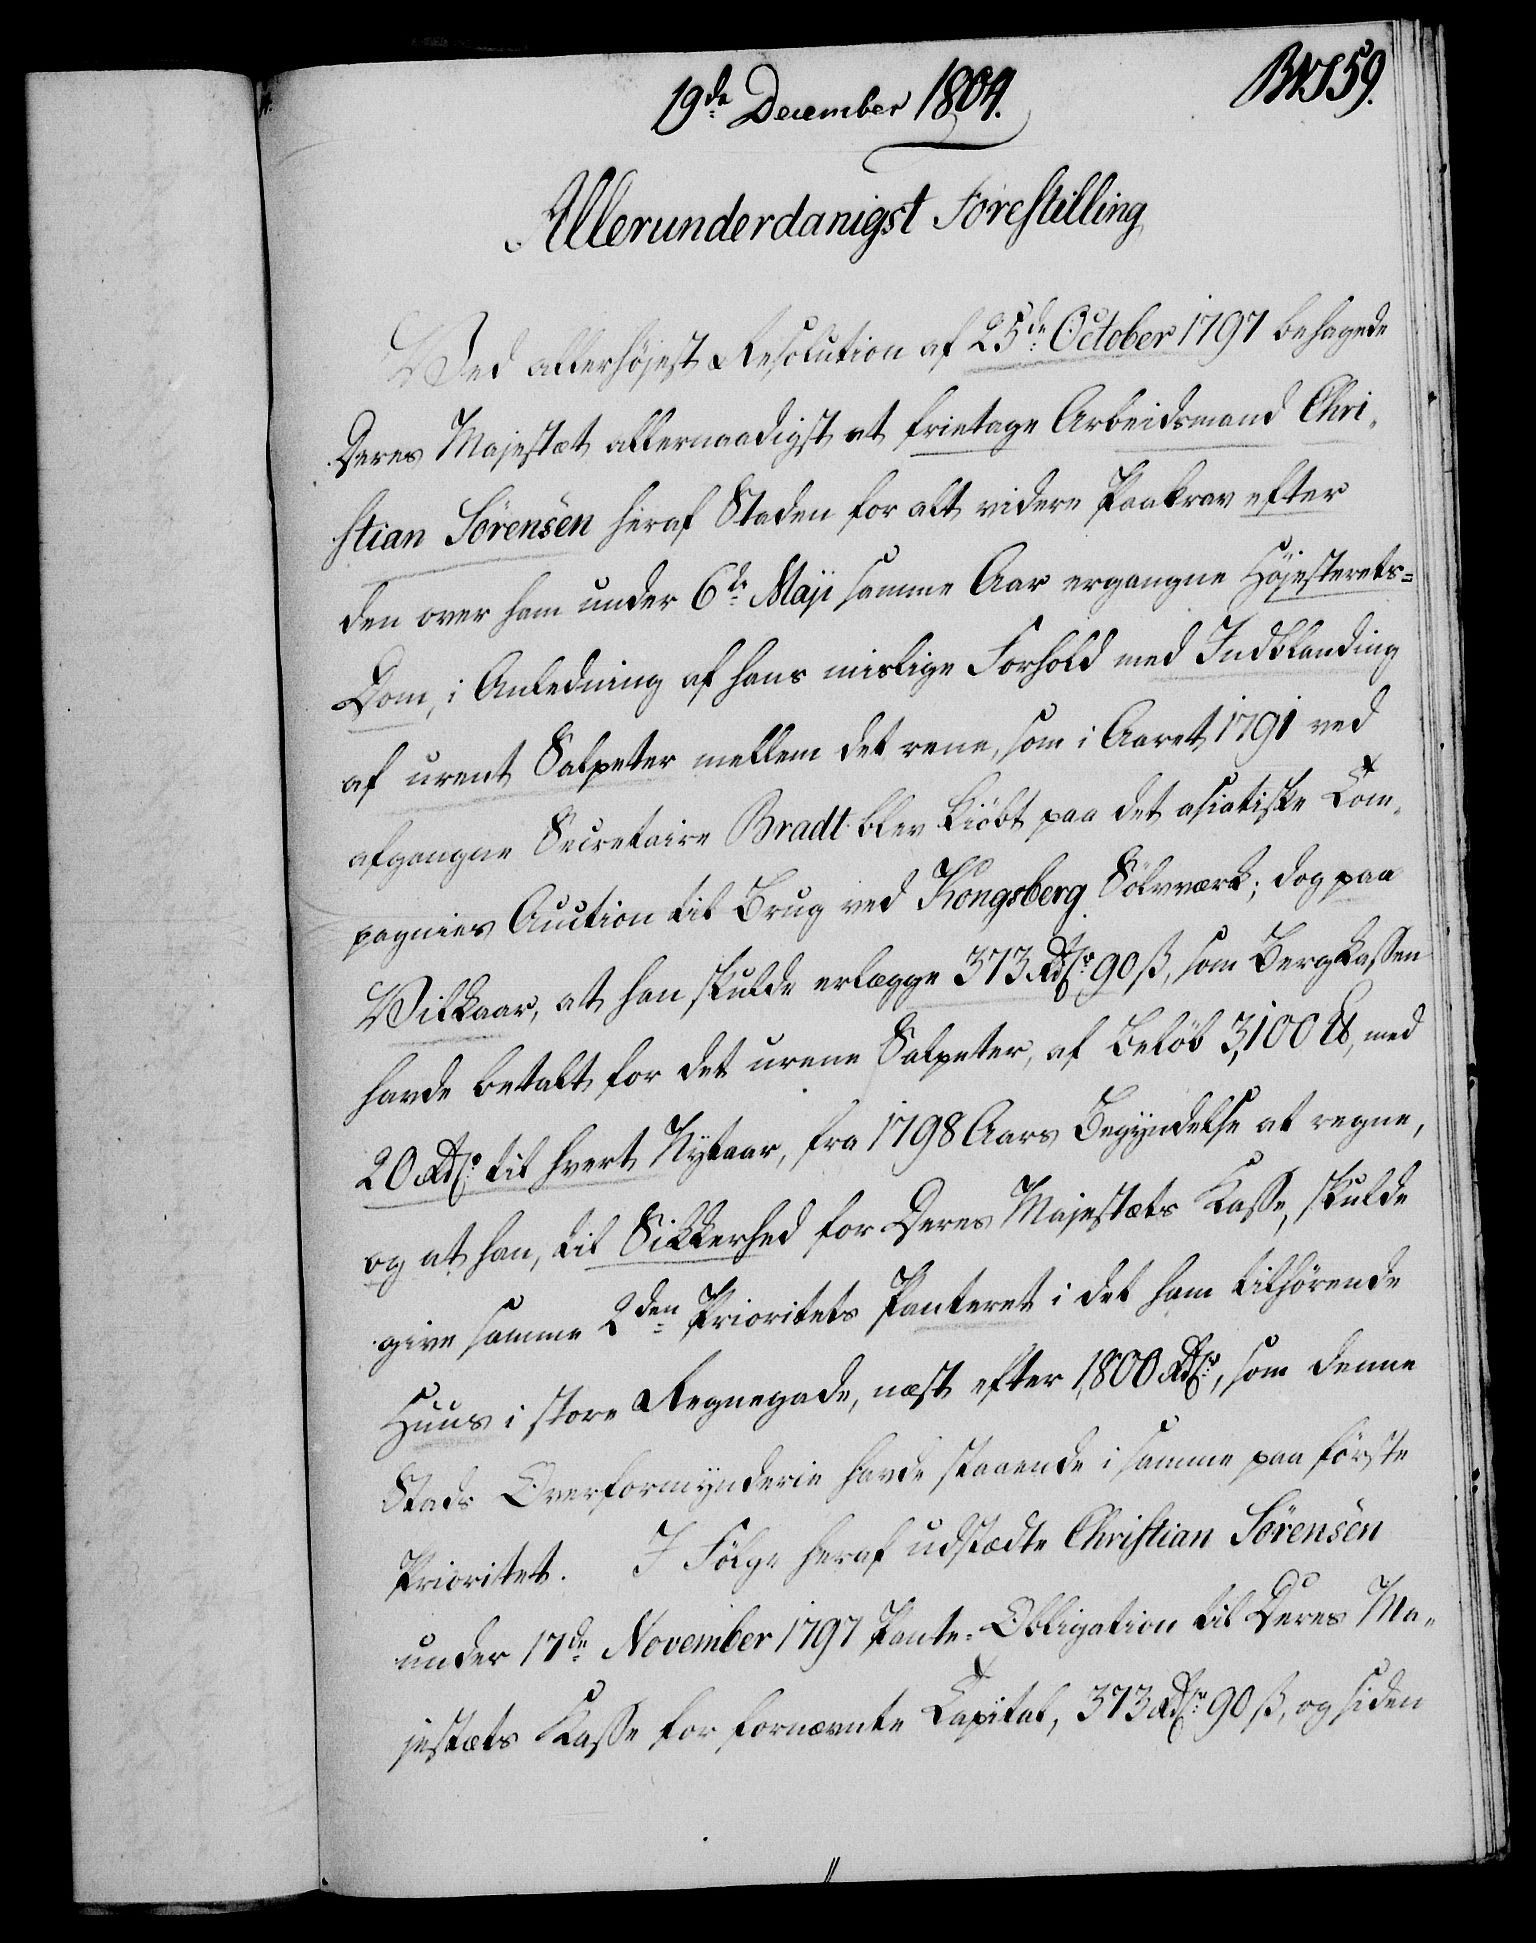 19de December 1804.
Allerunderdanigst Forestilling
Ved allerhøjest Resolution af 25de October 1797 behagede
Deres Majestæt allernaadigst at fritage Arbeidsmand Chri-
stian Sörensen heraf Staden for alt videre Paakrav efter
den over ham under 6te Maji samme Aar ergangne Højesterets=
Dom, i Anledning af hans mislige Forhold med Indblanding
af urent Salpeter mellem det rene, som i Aaret 1791 ved
afgangne Secretaire Bradt blev kiöbt paa det asiatiske Com-
pagnies Auction til Brug ved Kongsberg Sölvværk; dog paa
Vilkaar, at han skulde erlægge 373 Rdlr 90 ß, som Bergkassen
havde betalt for det urene Salpeter, af Belöb 3,100 ℔, med
20 Rdlr til hvert Nytaar, fra 1798 Aars Begyndelse at regne,
og at han, til Sikkerhed for Deres Majestæts Kasse, skulde
give samme 2den Prioritets Panteret i det ham tilhörende
Huus i store Regnegade, næst efter 1,800 Rdlr, som denne
Stads Overformynderie havde staaende i samme paa förste
Prioritet. I Fölge heraf udstædte Christian Sörensen
under 17de November 1797 Pante-Obligation til Deres Ma-
jestæts Kasse for fornævnte Capital, 373 Rdlr 90 ß, og siden